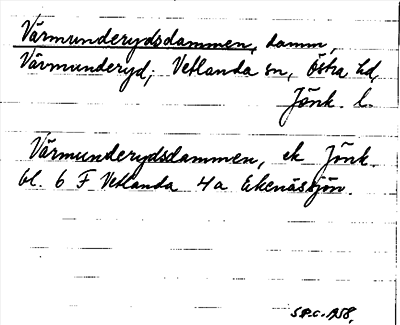 Värmunderydsdammen, damm,
Värmunderyd, Vetlanda sn, Östra hd,
Jönk. l.
Värmunderydsdammen, ek Jönk.
bl. 6 F Vetlanda 4a Ekenässjön.
1958.